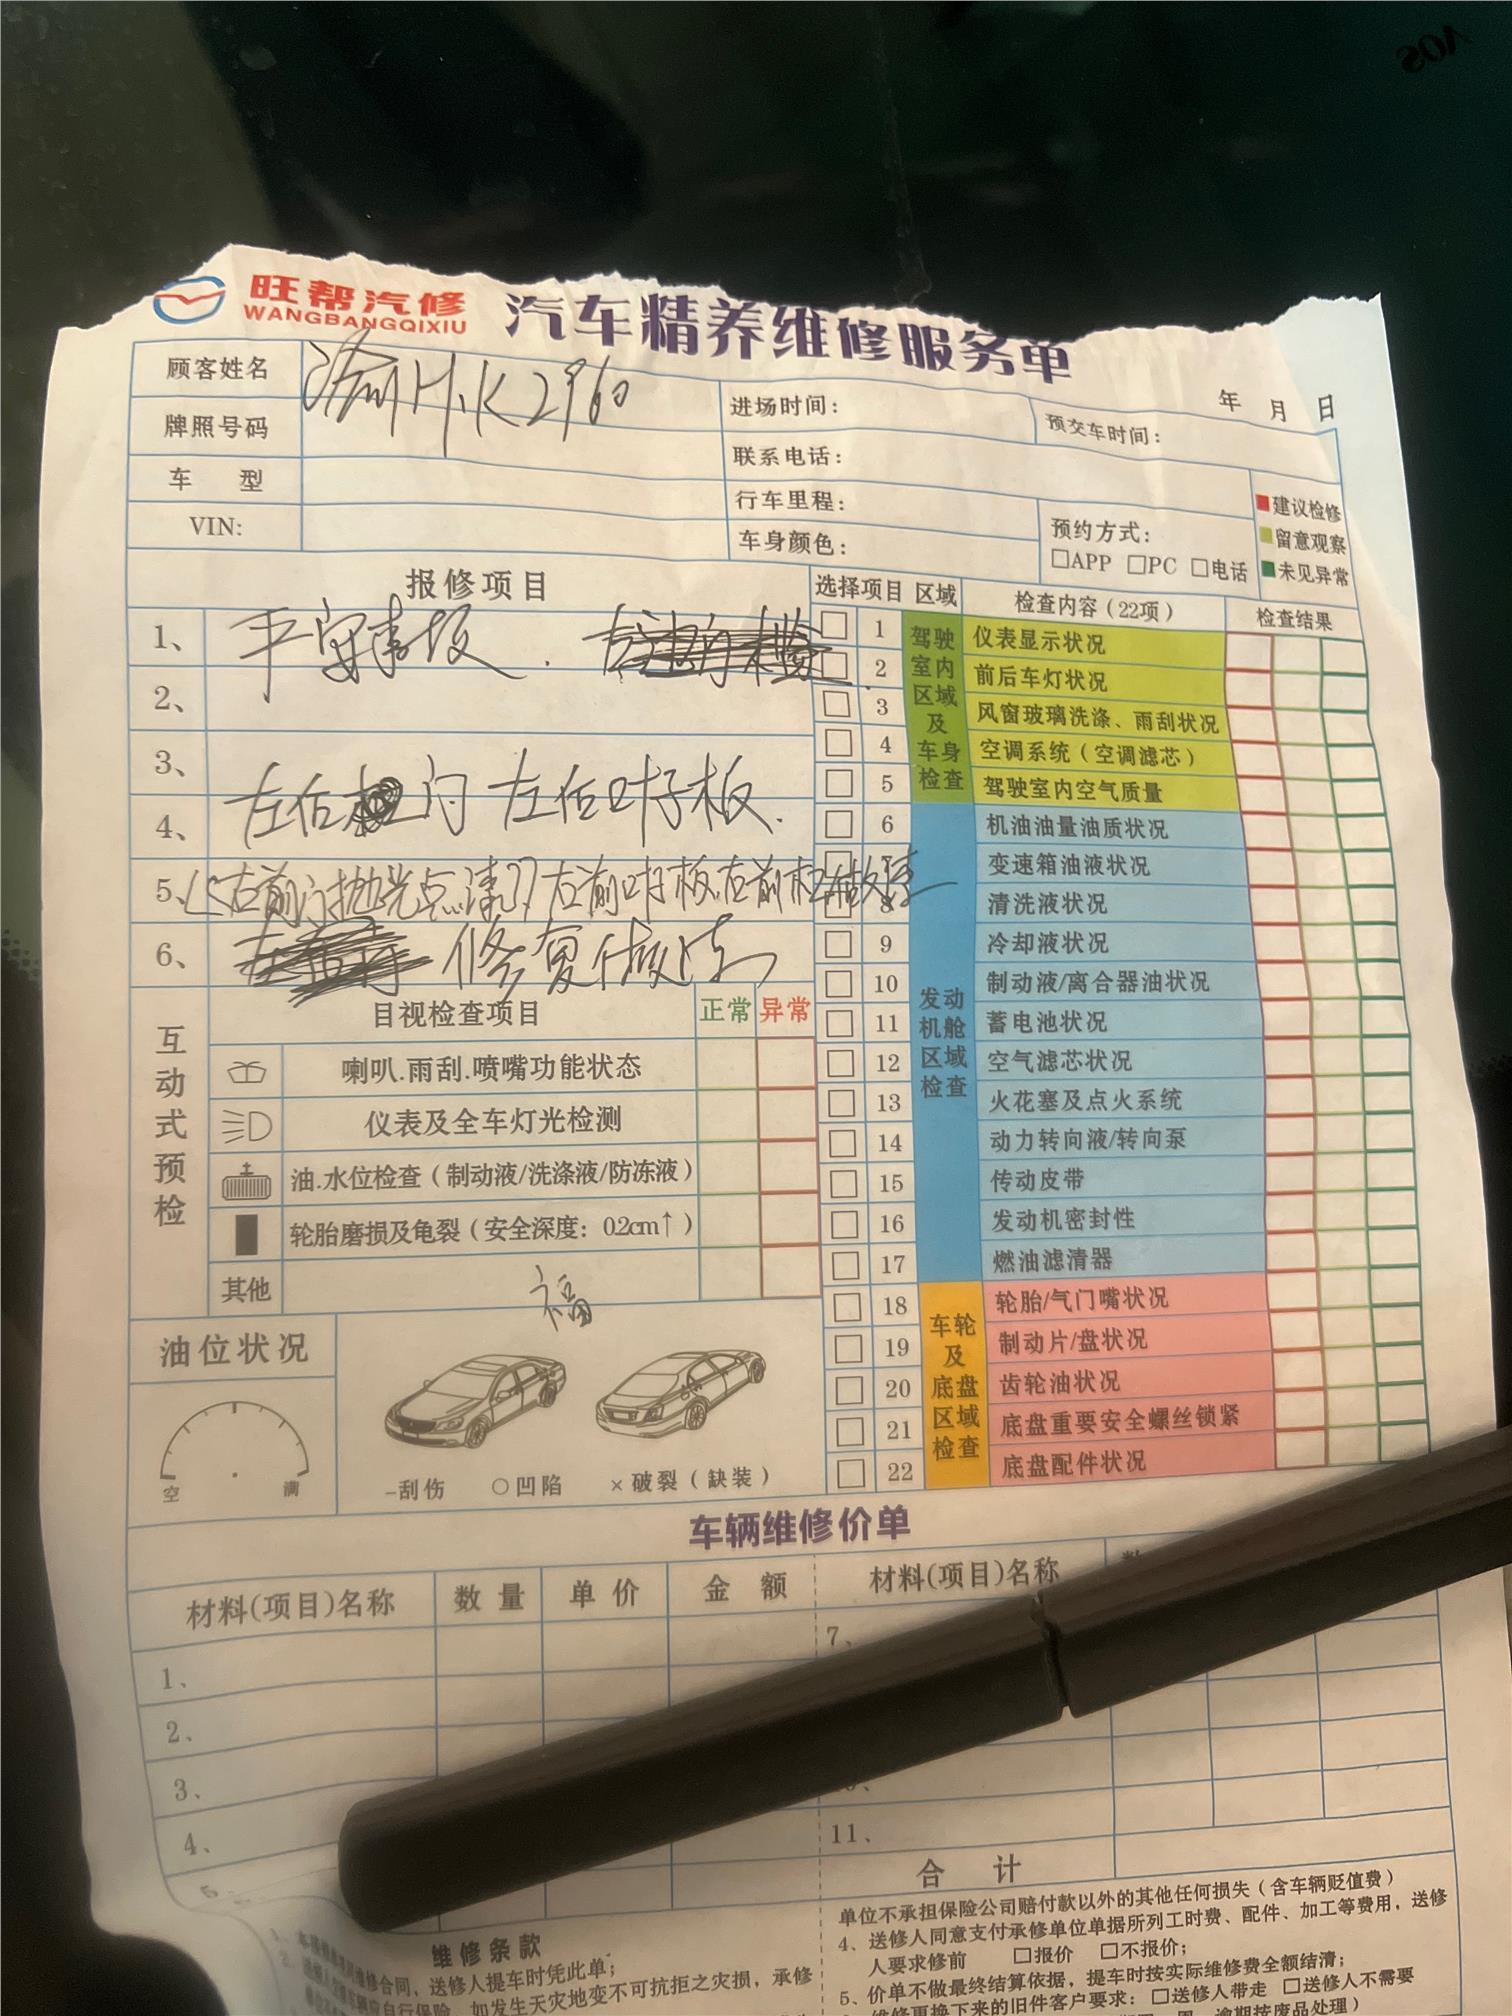 旺帮汽修
WANGBANGQIXIU
汽车精养维修服务单
年 月 日
顾客姓名
渝H·K2960
牌照号码
车 型
VIN:
进场时间：
预交车时间：
联系电话：
行车里程：
车身颜色：
预约方式：
□APP □PC □电话
建议检修
留意观察
未见异常
报修项目
1、平安
2、
3、
4、左后 门 左后叶子板.
5、(左前门抛光点漆) 左前叶板
6、修复做漆
选择项目 区域 检查内容（22项） 检查结果
驾驶室内区域及车身检查
1 仪表显示状况
2 前后车灯状况
3 风窗玻璃洗涤、雨刮状况
4 空调系统（空调滤芯）
5 驾驶室内空气质量
发动机舱区域检查
6 机油油量油质状况
变速箱油液状况
8 清洗液状况
9 冷却液状况
10 制动液/离合器油状况
11 蓄电池状况
12 空气滤芯状况
13 火花塞及点火系统
14 动力转向液/转向泵
15 传动皮带
16 发动机密封性
17 燃油滤清器
车轮及底盘区域检查
18 轮胎/气门嘴状况
19 制动片/盘状况
20 齿轮油状况
21 底盘重要安全螺丝锁紧
22 底盘配件状况
互动式预检
目视检查项目 正常 异常
喇叭.雨刮.喷嘴功能状态
仪表及全车灯光检测
油.水位检查（制动液/洗涤液/防冻液）
轮胎磨损及龟裂（安全深度：0.2cm↑）
其他
福
油位状况
空 满
-刮伤 ○凹陷 ×破裂（缺装）
车辆维修价单
材料(项目)名称 数量 单价 金额 材料(项目)名称
1、
2、
3、
4、
7、
11、
合 计
维修条款
维修合同，送修人提车时凭此单；
应自行保险，如发生天灾地变不可抗拒之灾损，承修
单位不承担保险公司赔付款以外的其他任何损失（含车辆贬值费）
4、送修人同意支付承修单位单据所列工时费、配件、加工等费用，送修
人要求修前 □报价 □不报价；
5、价单不做最终结算依据，提车时按实际维修费全额结清；
维修更换下来的旧件客户要求：□送修人带走 □送修人不需要
逾期按废品处理）